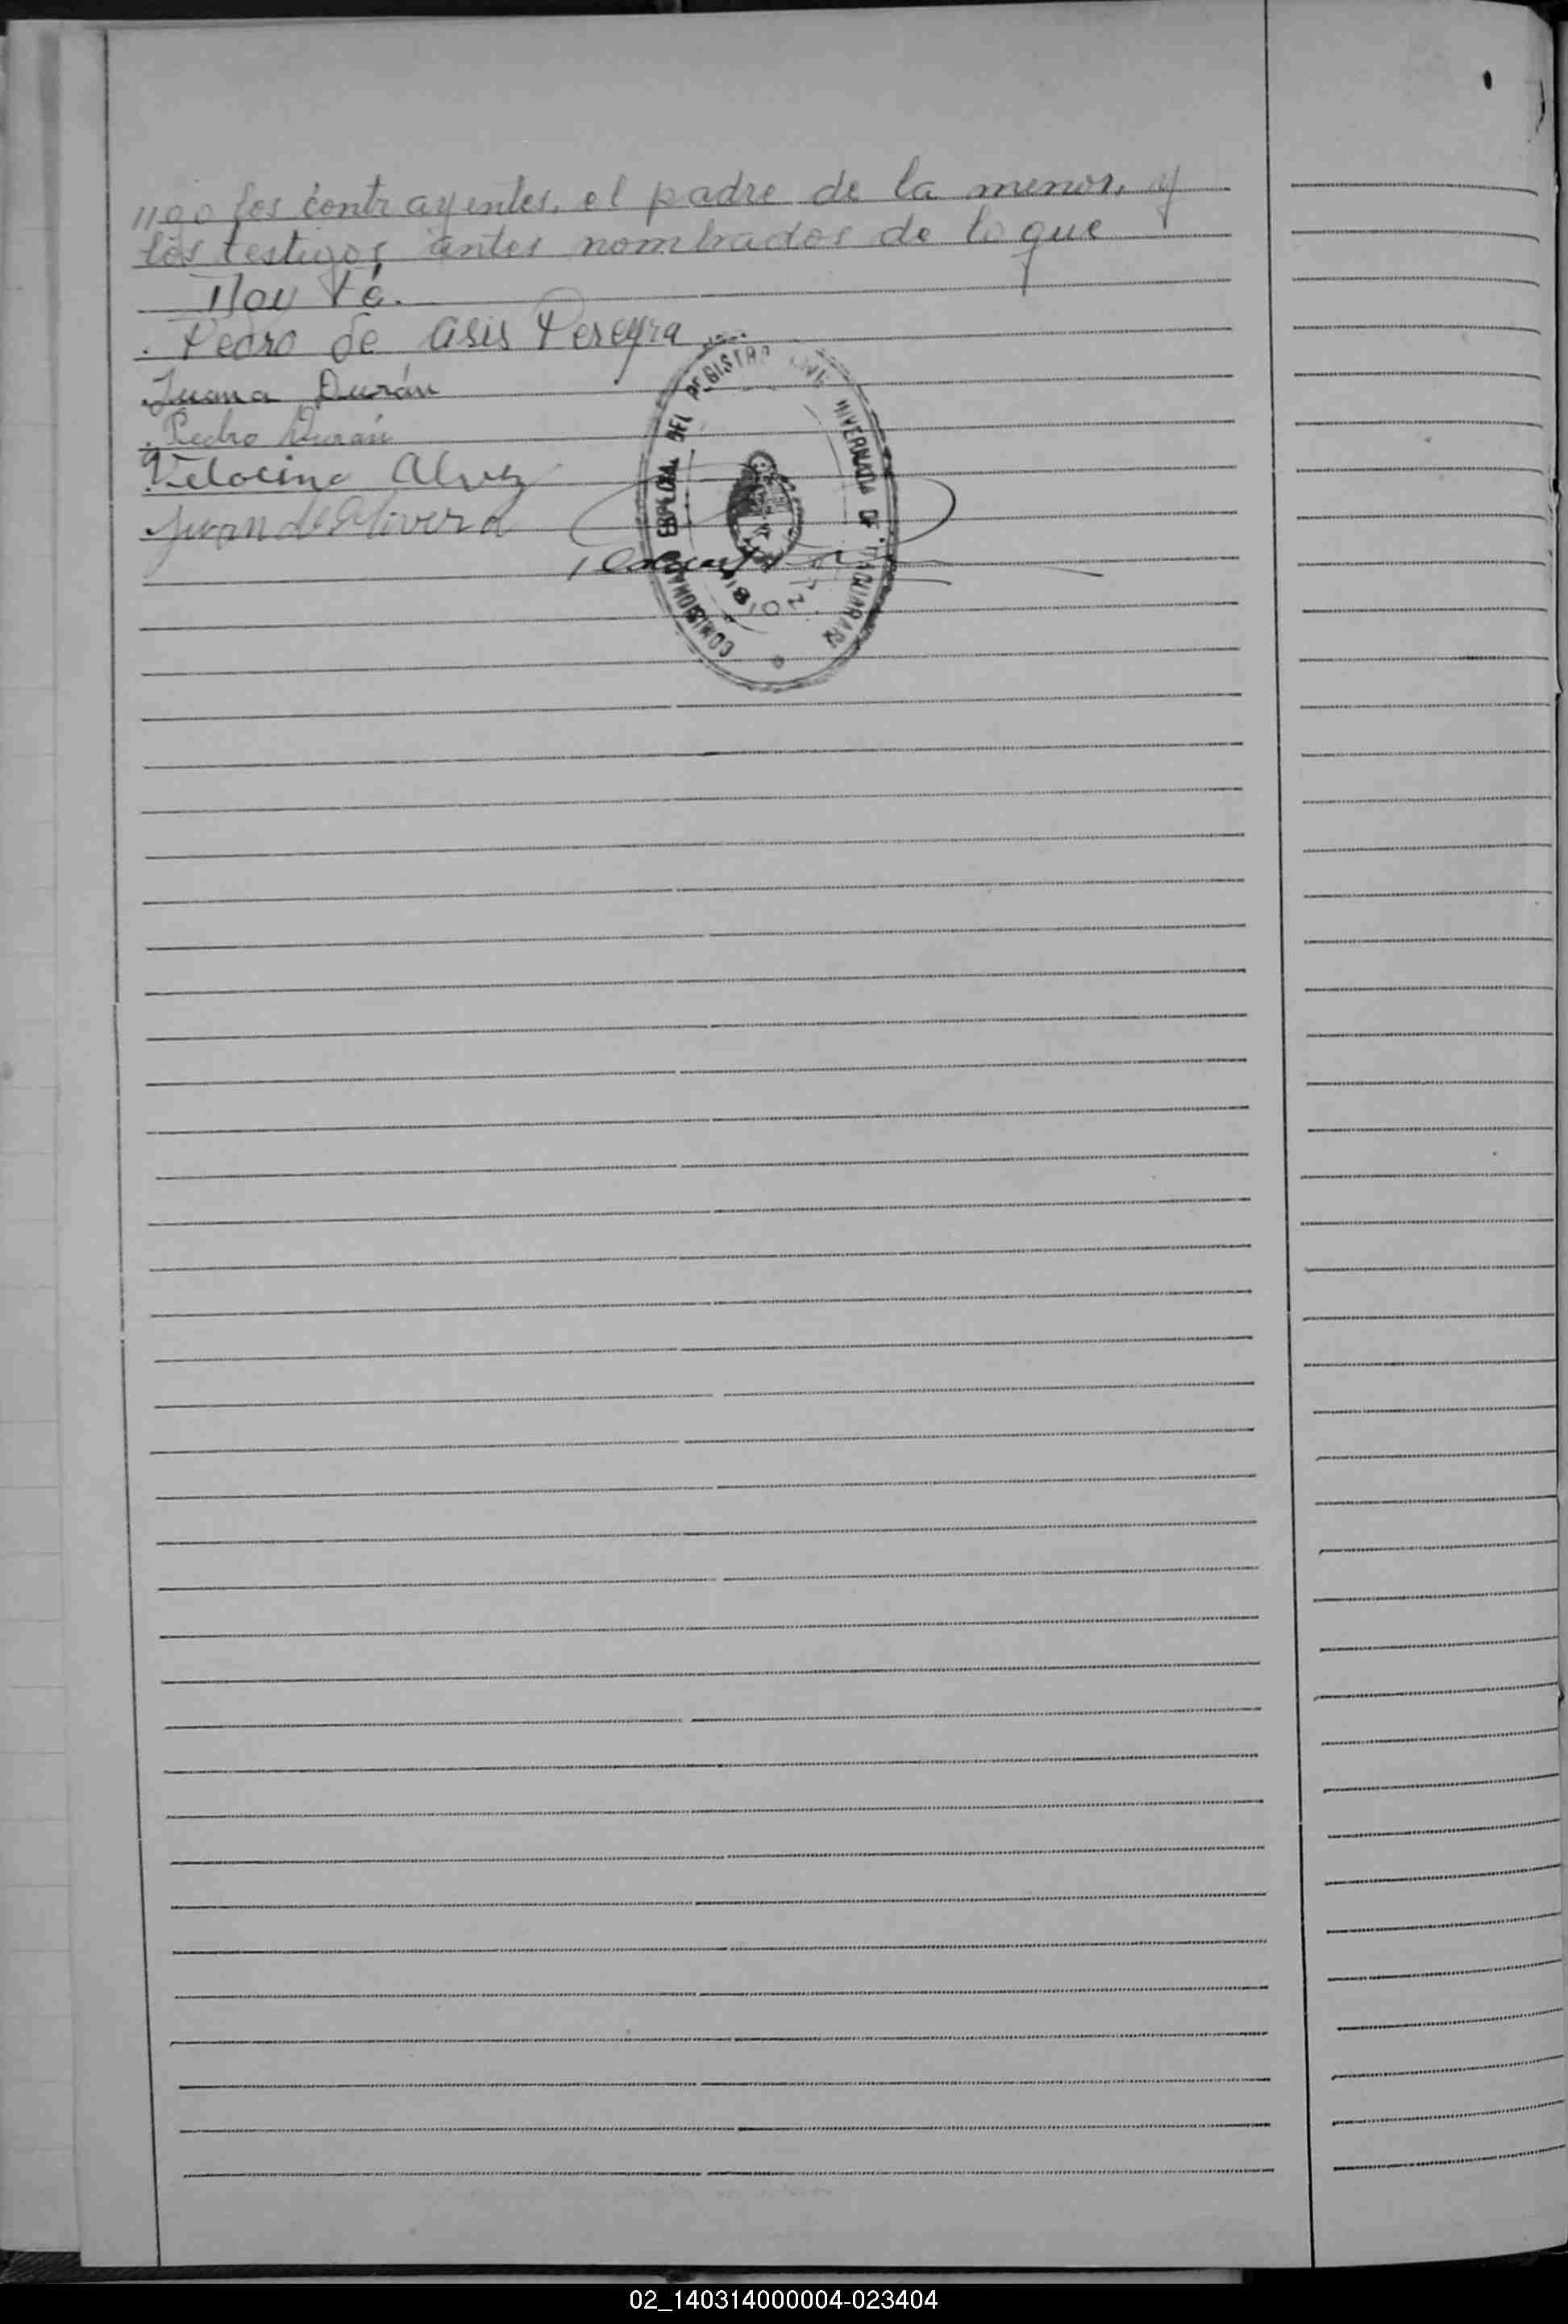 los contrayentes, el padre de la menor, y
los testigos antes nombrados de lo que
Doy Fé.
Pedro de Asis Pereyra
Juana Durán
Pedro Durán
Alvez
Juan de Olivera
COMISIONADO ESPECIAL DEL REGISTRO CIVIL INVERNADA DE ITACUARARE
MISIONES
02_140314000004-023404